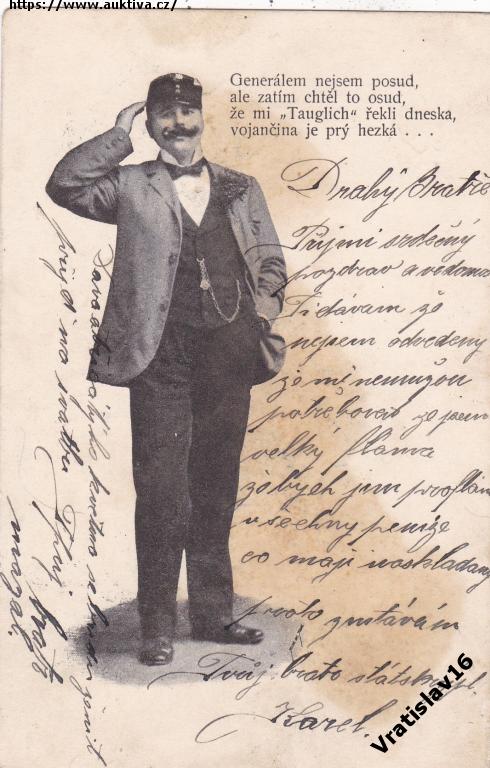 https://www.auktiva.cz/
Generálem nejsem posud,
ale zatím chtěl to osud,
že mi „Tauglich“ řekli dneska,
vojančina je prý hezká . . .
Drahý Bratře
Přijmi srdečný
pozdrav a vědomí
Ti dávám že
nejsem odvedený
že mě nemužou
potřebovat že jsem
velký flama
žebych jim proflám
všechny peníze
co mají naskládaný
proto zustávám
Tvůj bratr
Karel.
přijď na svatbu
Tvůj bratr
Vratislav16